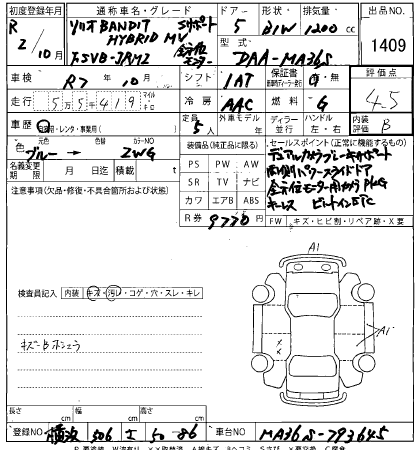 初度登録年月 通称車名・グレード ドア 形状 排気量 出品NO
R 2/10月 ソリオ BANDIT Sサポート 5 B/W 1200 cc 1409
HYBRID MV 全方位モニター 型式
F.5VB-JRM2 DAA-MA36S
車検 R7年10月 シフト IAT 保証書 有・無 評価点 4.5
走行 55419 マイル キロ 冷房 AAC 燃料 G 内装評価 B
車歴 自家用・レンタ・事業用( ) 定員 5人 外車モデル 年 ディーラー 並行 ハンドル 左・右
色 元色 ブルー → 色替 カラーNO ZWG
装備品(純正品に限る) セールスポイント(正常に機能するもの)
名義変更期限 月 日 積載 t
PS PW AW
SR TV ナビ
カワ エアB ABS
R券 9770 円
デュアルカメラブレーキサポート
両側パワースライドドア
全方位モニター用カメラPKG
キーレス ビルトインETC
FW キズ・ヒビ割・リペア跡・X要
注意事項(欠品・修復・不具合箇所および状態)
検査員記入 内装 キズ・汚れ・コゲ・穴・スレ・キレ
A1
A1
長さ cm 幅 cm 高さ cm
登録NO 横浜 506 50-86 車台NO MA36S-793645